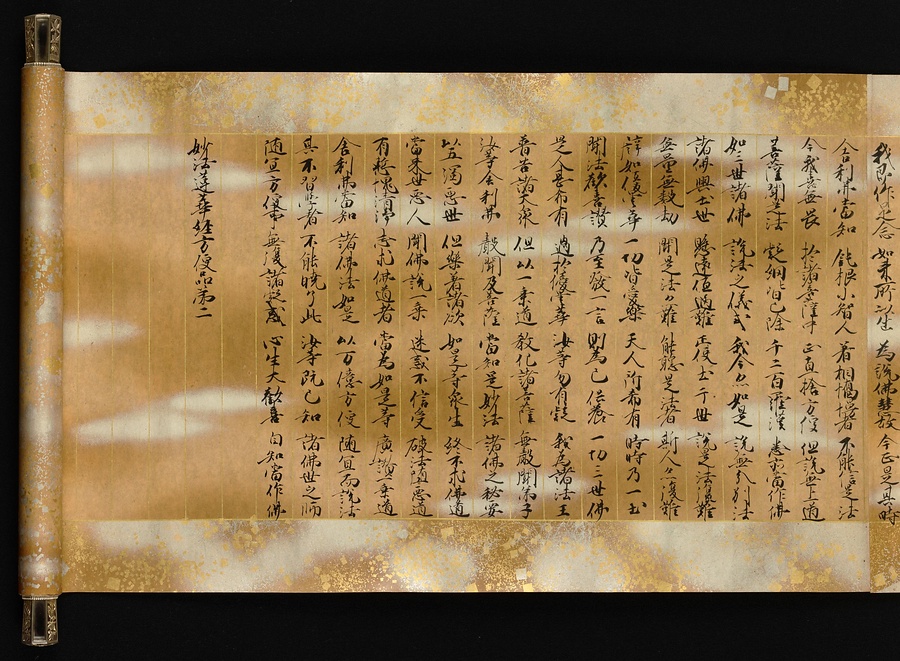 我即作是念 如来所以出 為說佛慧故 今正是其時
舍利弗當知 鈍根小智人 著相憍慢者 不能信是法
今我喜無畏 於諸菩薩中 正直捨方便 但說無上道
菩薩聞是法 疑網皆已除 千二百羅漢 悉亦當作佛
如三世諸佛 說法之儀式 我今亦如是 說無分別法
諸佛興出世 懸遠值遇難 正使出于世 說是法復難
無量無數劫 聞是法亦難 能聽是法者 斯人亦復難
譬如優曇華 一切皆愛樂 天人所希有 時時乃一出
聞法歡喜讚 乃至發一言 則為已供養 一切三世佛
是人甚希有 過於優曇華 汝等勿有疑 我為諸法王
普告諸大衆 但以一乘道 教化諸菩薩 無聲聞弟子
汝等舍利弗 聲聞及菩薩 當知是妙法 諸佛之秘要
以五濁惡世 但樂著諸欲 如是等衆生 終不求佛道
當来世惡人 聞佛說一乘 迷惑不信受 破法墮惡道
有慙愧清淨 志求佛道者 當為如是等 廣讚一乘道
舍利弗當知 諸佛法如是 以万億方便 隨宜而說法
其不習學者 不能曉了此 汝等既已知 諸佛世之師
隨宜方便事 無復諸疑惑 心生大歡喜 自知當作佛
妙法蓮華経方便品第二